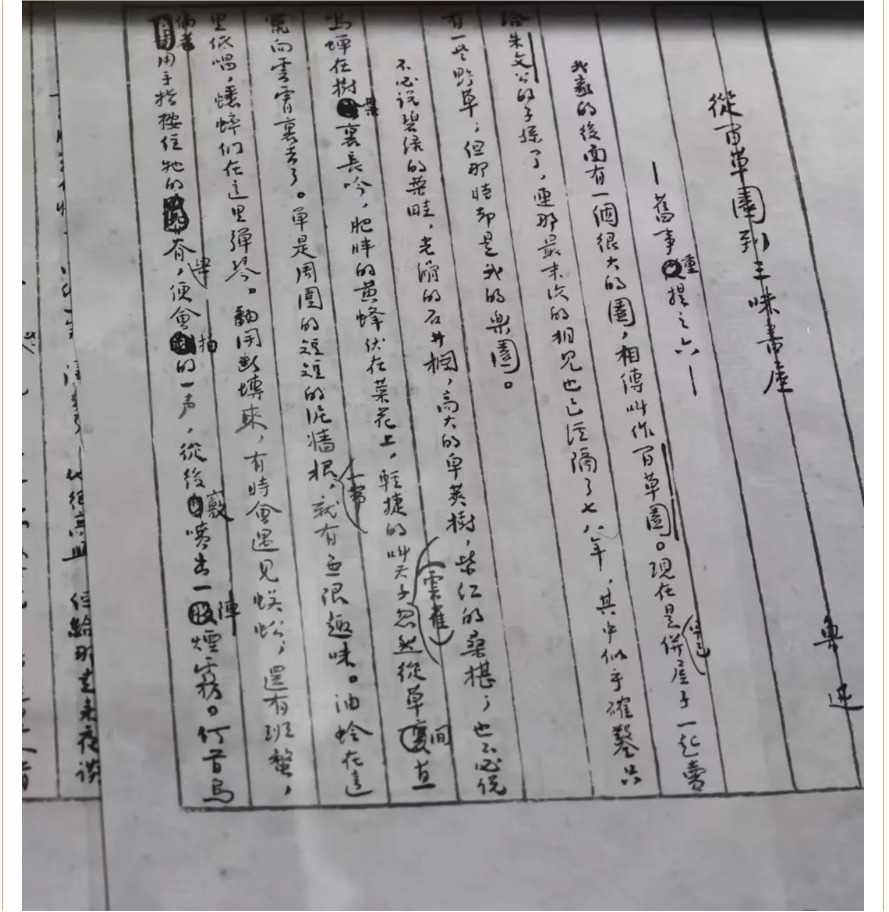 從百草園到三味書屋
——舊事重提之六——
魯迅
我家的後面有一個很大的園，相傳叫作百草園。現在是早已併屋子一起賣
給朱文公的子孫了，連那最末次的相見也已經隔了七八年，其中似乎確鑿只
有一些野草；但那時却是我的樂園。
不必说碧绿的菜畦，光滑的石井欄，高大的皁莢樹，紫红的桑椹；也不必说
鳴蟬在樹葉裏長吟，肥胖的黄蜂伏在菜花上，輕捷的叫天子（雲雀）忽然從草間直
竄向雲霄裏去了。單是周圍的短短的泥牆根一帶，就有無限趣味。油蛉在這
里低唱，蟋蟀们在這里彈琴。翻開断塼來，有時會遇見蜈蚣；還有班蝥，
倘若用手指按住牠的脊梁，便會拍的一声，從後竅噴出一陣煙霧。何首烏